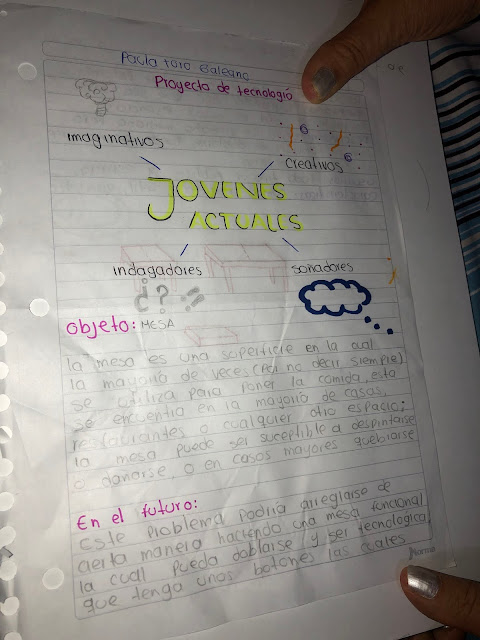 Paula toro Galeano
Proyecto de tecnología
imaginativos
creativos
JOVENES
ACTUALES
indagadores
soñadores
¿?
objeto: MESA
la mesa es una superficie en la cual
la mayoria de veces (por no decir siempre)
se utiliza para poner la comida, esta
se encuentra en la mayoria de casas,
restaurantes o cualquier otro espacio;
la mesa puede ser suceptible a despintarse
o dañarse, o en casos mayores quebrarse
En el futuro:
Este problema podria arreglarse de
cierta manera haciendo una mesa funcional
la cual pueda doblarse y ser tecnologica,
que tenga unos botones las cuales